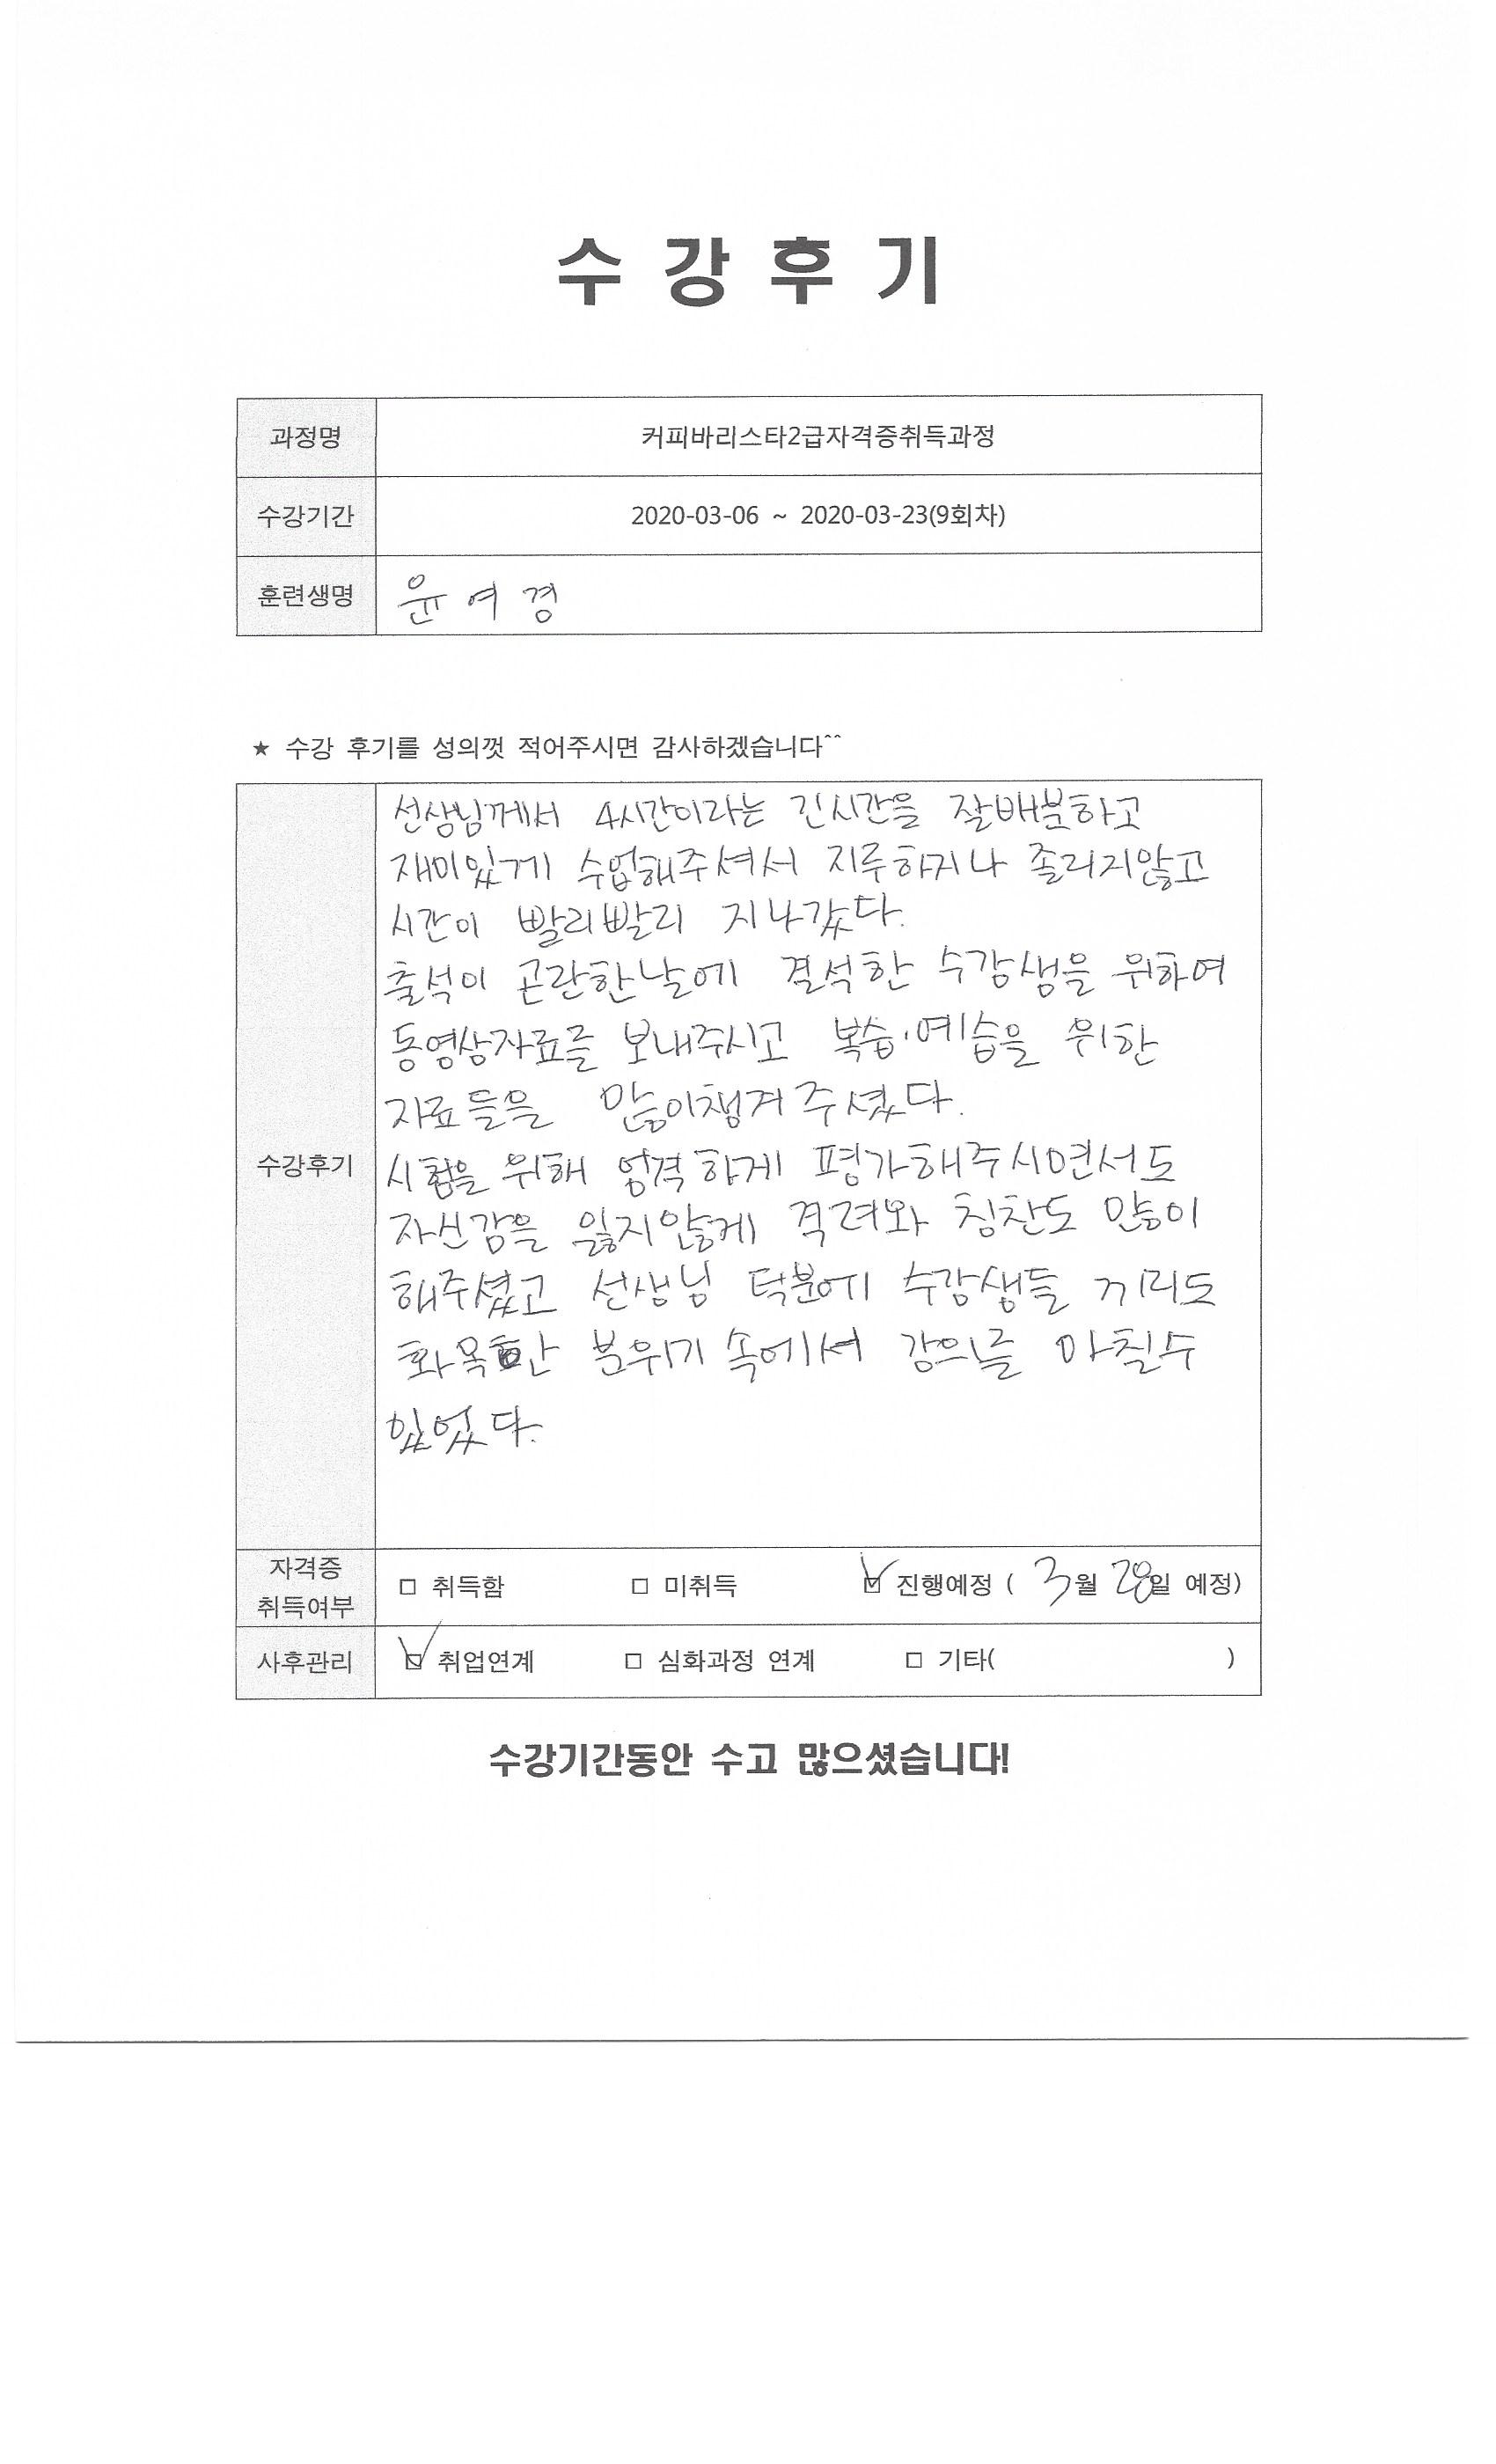 수 강 후 기
과정명 커피바리스타2급자격증취득과정
수강기간 2020-03-06 ~ 2020-03-23(9회차)
훈련생명 윤여경
★ 수강 후기를 성의껏 적어주시면 감사하겠습니다^^
선생님께서 4시간이라는 긴시간을 잘배분하고
재미있게 수업해주셔서 지루하지나 졸리지않고
시간이 빨리빨리 지나갔다.
출석이 곤란한날에 결석한 수강생을 위하여
동영상자료를 보내주시고 복습·예습을 위한
자료들을 많이챙겨주셨다.
수강후기
시험을 위해 엄격하게 평가해주시면서도
자신감을 잃지않게 격려와 칭찬도 많이
해주셨고 선생님 덕분에 수강생들 끼리도
화목한 분위기 속에서 강의를 마칠수
있었다.
자격증
취득여부 □ 취득함 □ 미취득 ☑ 진행예정 ( 3월 28일 예정)
사후관리 ☑ 취업연계 □ 심화과정 연계 □ 기타( )
수강기간동안 수고 많으셨습니다!